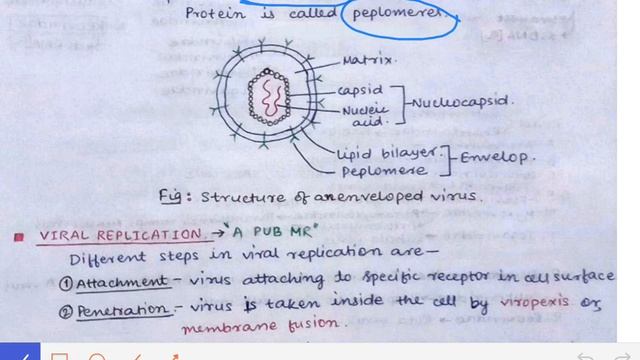 Protein is called peplomeres.
Matrix.
capsid
Nucleic acid.
Nucleocapsid.
Lipid bilayer.
Peplomere
Envelop.
Fig: Structure of an enveloped virus.
VIRAL REPLICATION → "A PUB MR"
Different steps in viral replication are—
① Attachment - virus attaching to specific receptor in cell surface
② Penetration - virus is taken inside the cell by viropexis or
membrane fusion.